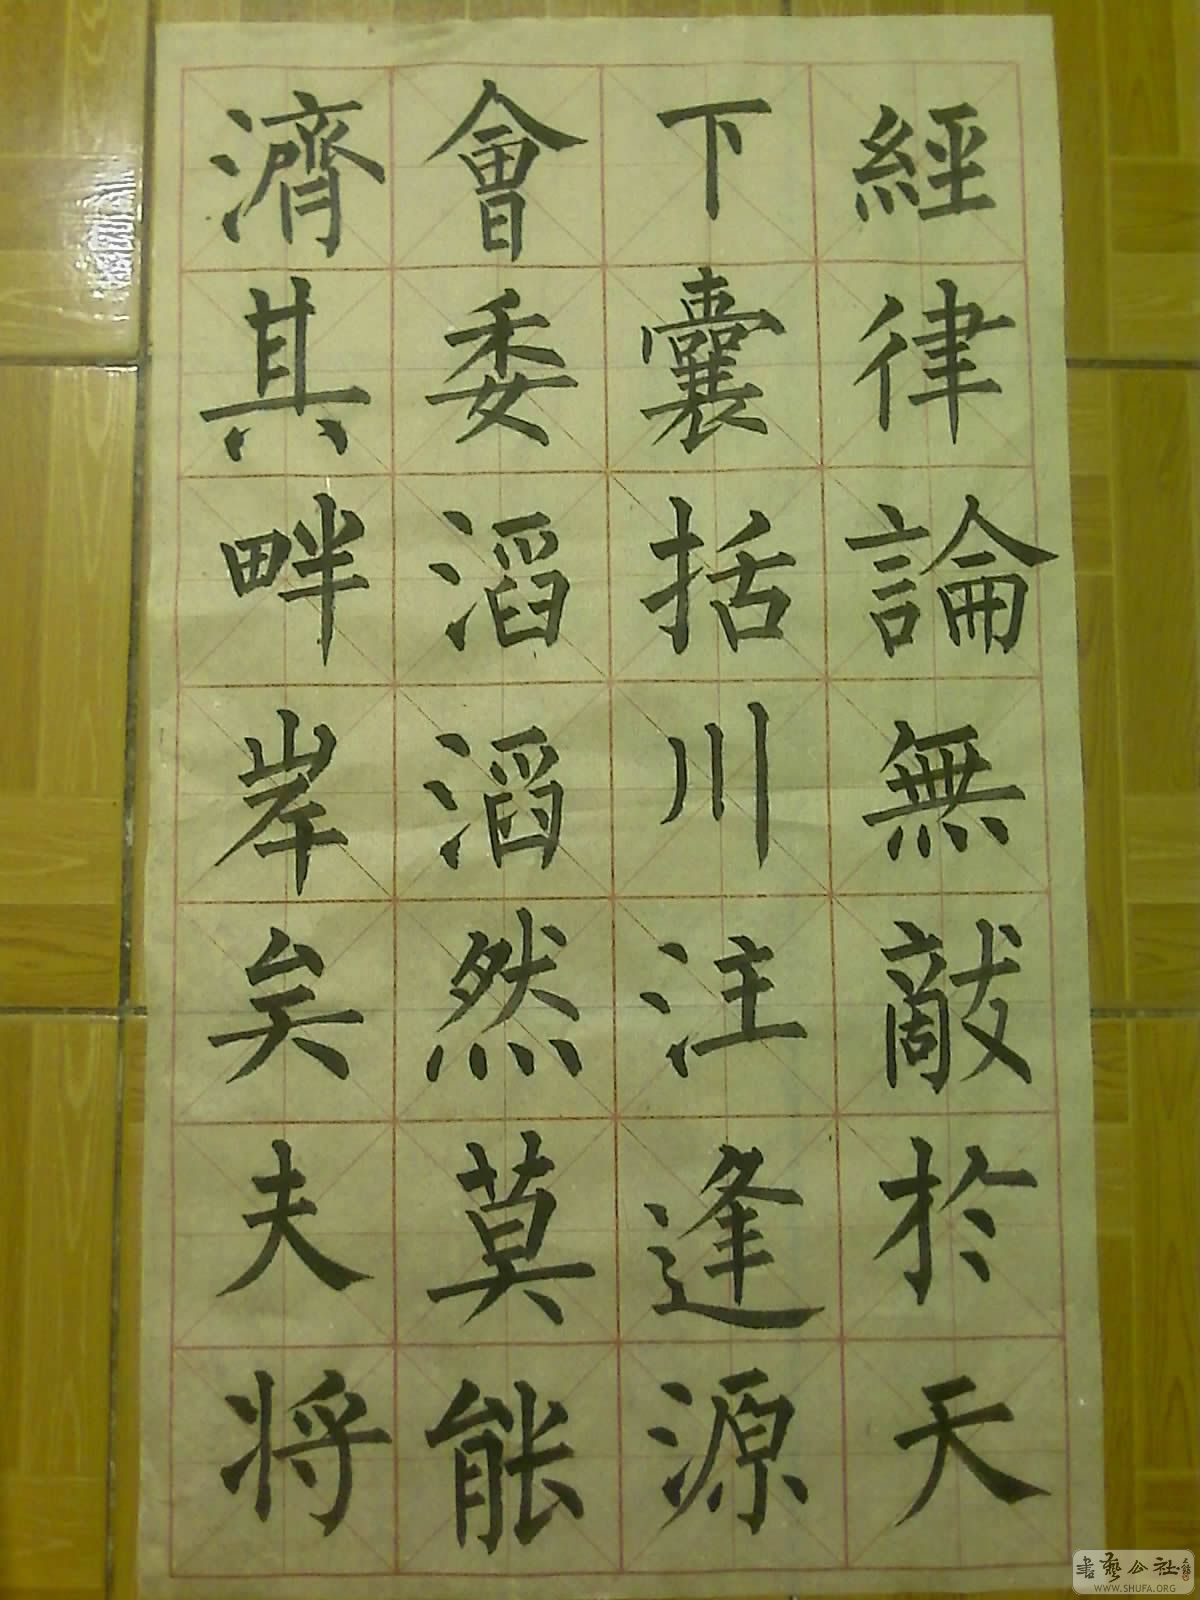 經律論無敵於天
下囊括川注逢源
會委滔滔然莫能
濟其畔岸矣夫将
書藝公社
WWW.SHUFA.ORG